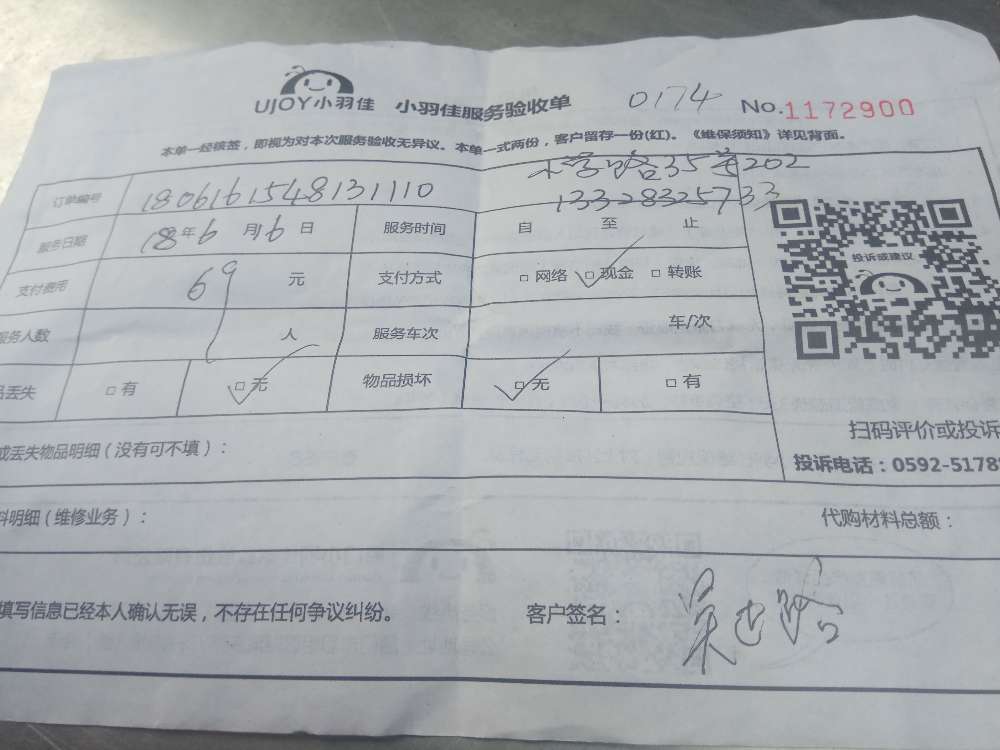 UJOY小羽佳 小羽佳服务验收单 0174 No.1172900
本单一经核签，即视为对本次服务验收无异议。本单一式两份，客户留存一份(红)。《维保须知》详见背面。
订单编号 1806161548131110 35 202
13328325733
服务日期 18年6月16日 服务时间 自 至 止
支付费用 69 元 支付方式 □网络 □现金 □转账
投诉或建议
服务人数 人 服务车次 车/次
品丢失 □有 □无 物品损坏 □无 □有
扫码评价或投诉
或丢失物品明细（没有可不填）：
投诉电话：0592-5178
料明细（维修业务）： 代购材料总额：
填写信息已经本人确认无误，不存在任何争议纠纷。 客户签名：